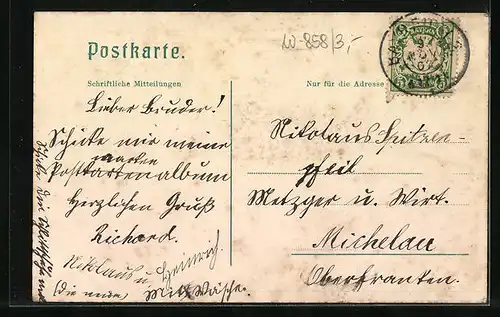 Postkarte.
W-858/3,-
Schriftliche Mitteilungen
Nur für die Adresse
Lieber Bruder!
Schicke mir meine
Postkartenalbum
Herzlichen Gruß
Richard.
Nikolaus u. Heinrich.
(die
Mit Wäsche.
Nikolaus
pfeil
Metzger u. Wirt.
Michelau
Oberfranken.